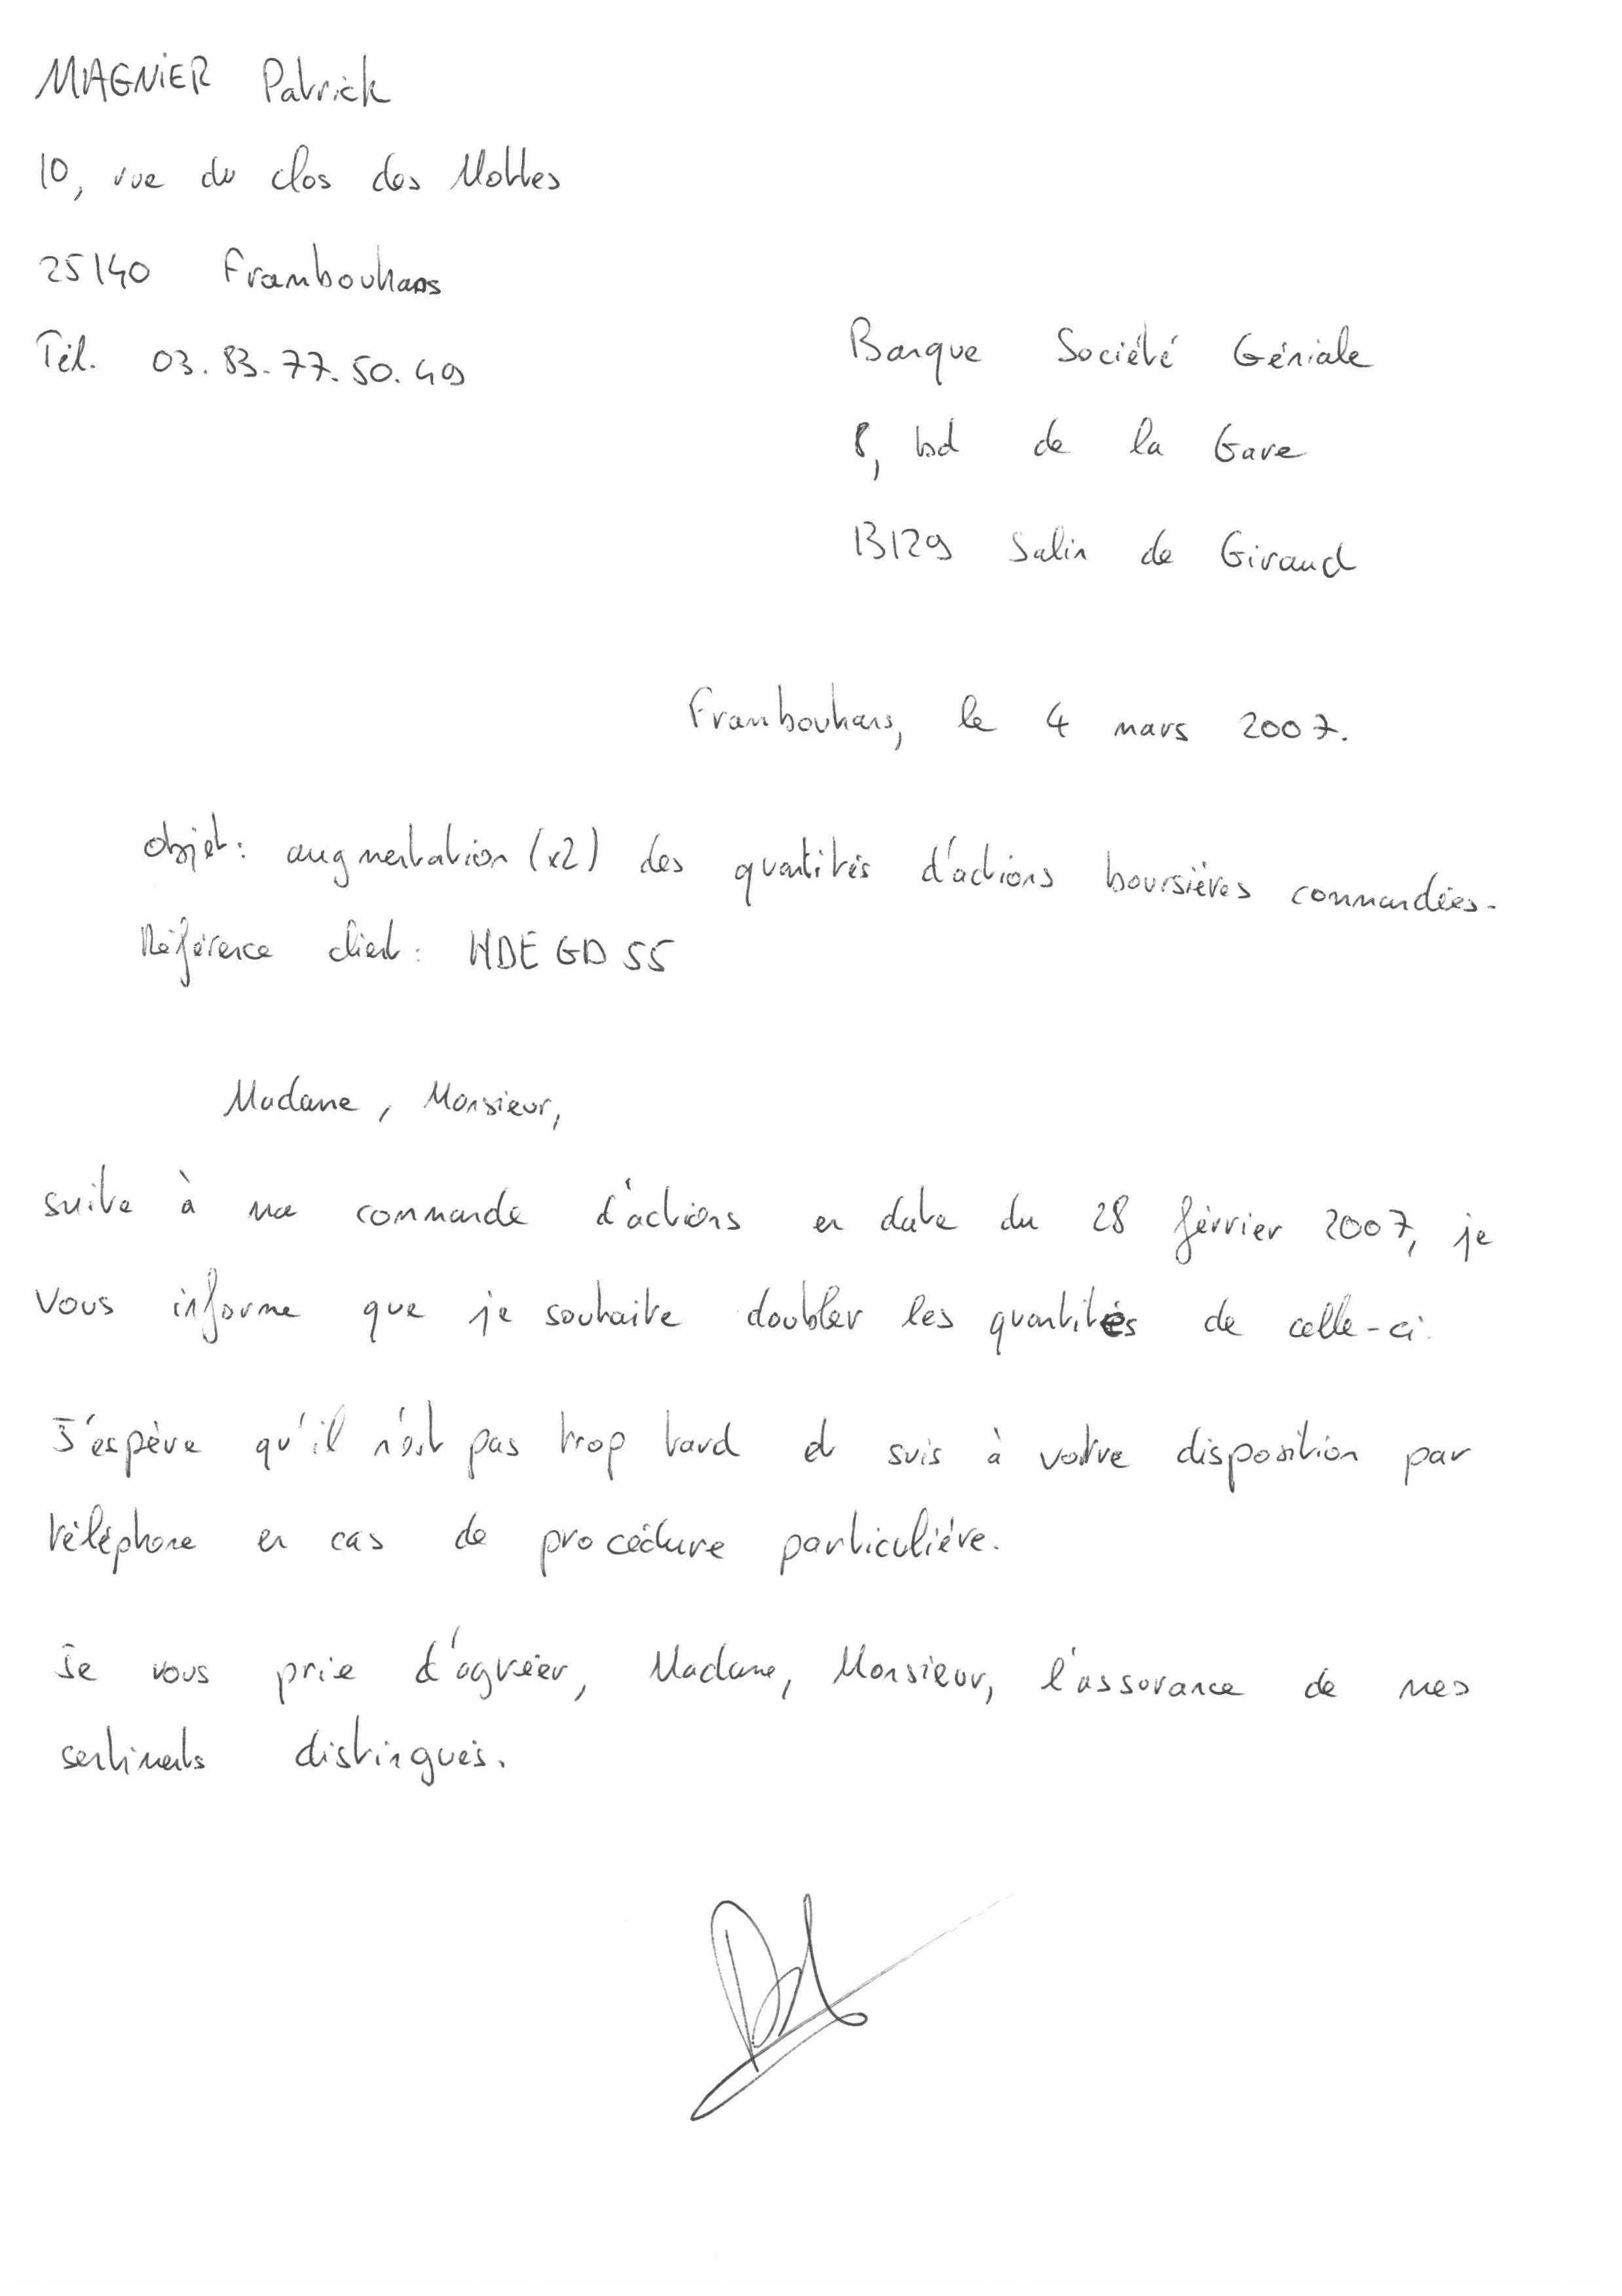 MAGNIER Patrick
10, rue du clos des Mottes
25140 Frambouhans
Tél. 03.83.77.50.49
Banque Société Géniale
8, bd de la Gare
13129 Salin de Giraud
Frambouhans, le 4 mars 2007.
Objet: augmentation (x2) des quantités d'actions boursières commandées.
Référence client: HDEGD55
Madame, Monsieur,
suite à ma commande d'actions en date du 28 février 2007, je
vous informe que je souhaite doubler les quantités de celle-ci.
J'espère qu'il n'est pas trop tard et suis à votre disposition par
téléphone en cas de procédure particulière.
Je vous prie d'agréer, Madame, Monsieur, l'assurance de mes
sentiments distingués.